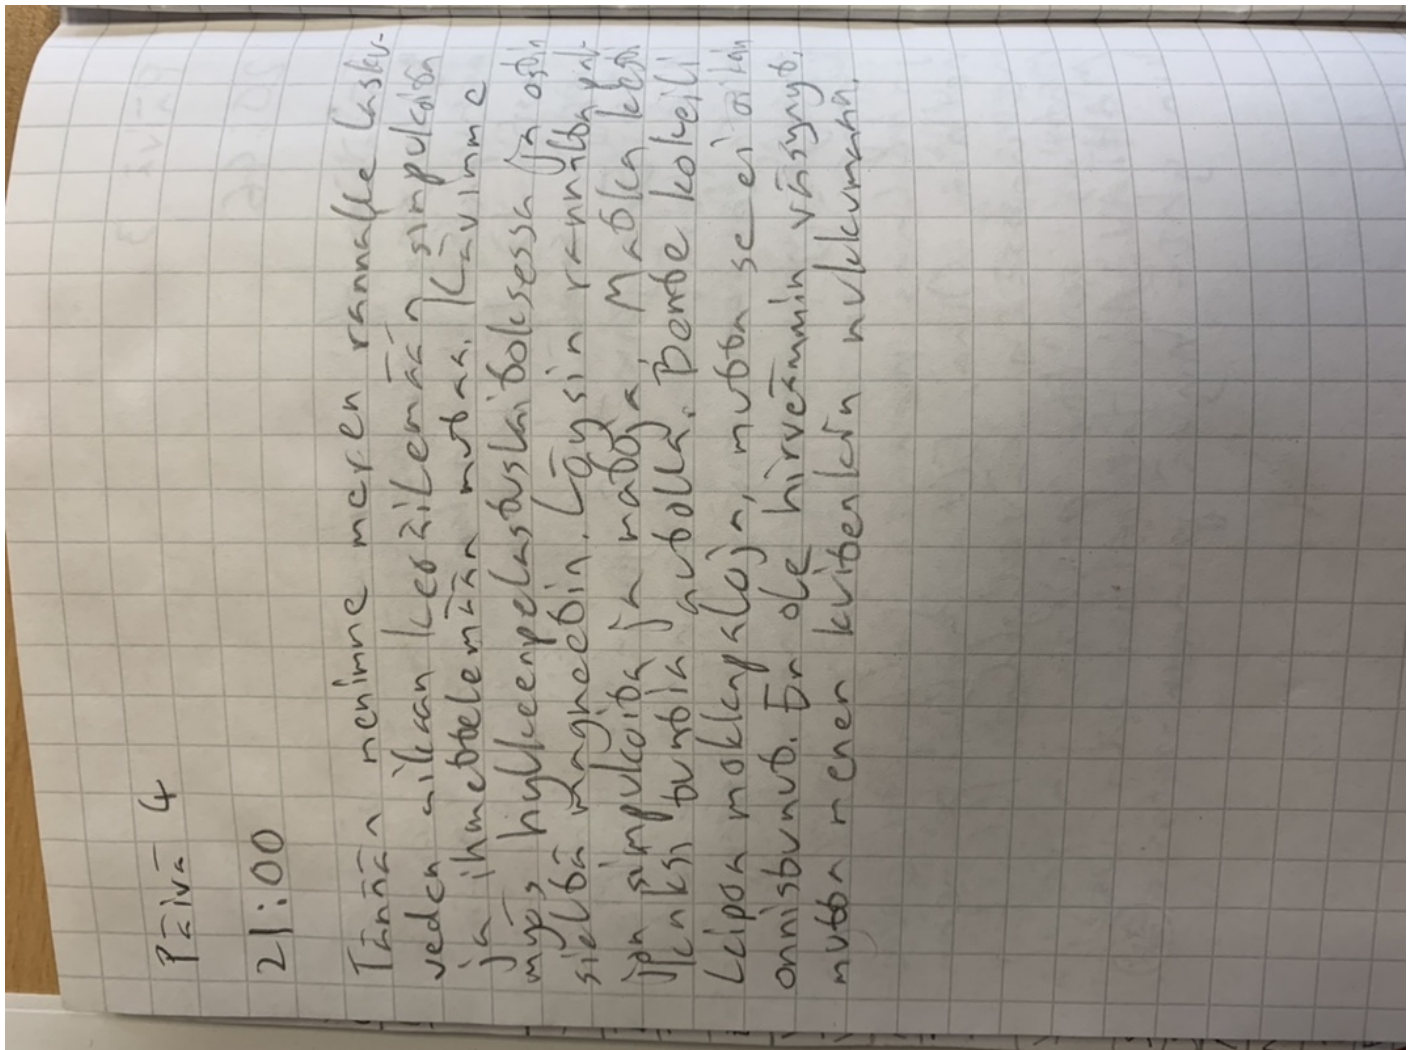 Päivä 4
21:00
Tänää n menimme meren rannalle lasku-
veden aikaan keräilemään simpukoita
ja ihmettelemään mutaa. Kävimme
myös hylkeenpelastuslaitoksessa ja ostin
sieltä magneetin. Löysin rannalta pal-
jon simpukoita ja matoja. Matka kesti
kaksi tuntia autolla. Bente kokeili
leipoa mokkapaloja, mutta se ei oikein
onnistunut. En ole hirveämmin väsynyt,
mutta menen kuitenkin nukkumaan.